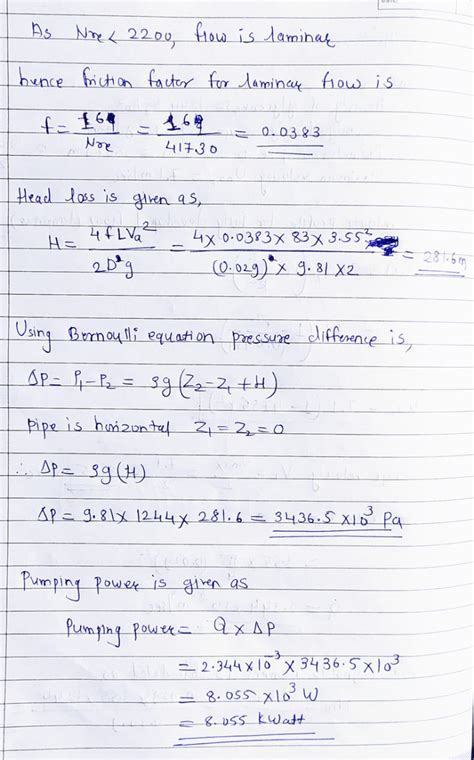 As Nre < 2200, flow is laminar
hence friction factor for laminar flow is
f = 16/Nre = 16/417.30 = 0.0383
Head loss is given as,
H = 4fLVa²/2Dg = 4 × 0.0383 × 83 × 3.55²/(0.029) × 9.81 × 2 = 281.6m
Using Bernoulli equation pressure difference is,
ΔP = P₁ - P₂ = ρg(Z₂ - Z₁ + H)
pipe is horizontal Z₁ = Z₂ = 0
∴ ΔP = ρg(H)
ΔP = 9.81 × 1244 × 281.6 = 3436.5 × 10³ Pa
Pumping power is given as
Pumping power = Q × ΔP
= 2.344 × 10⁻³ × 3436.5 × 10³
= 8.055 × 10³ W
= 8.055 kWatt